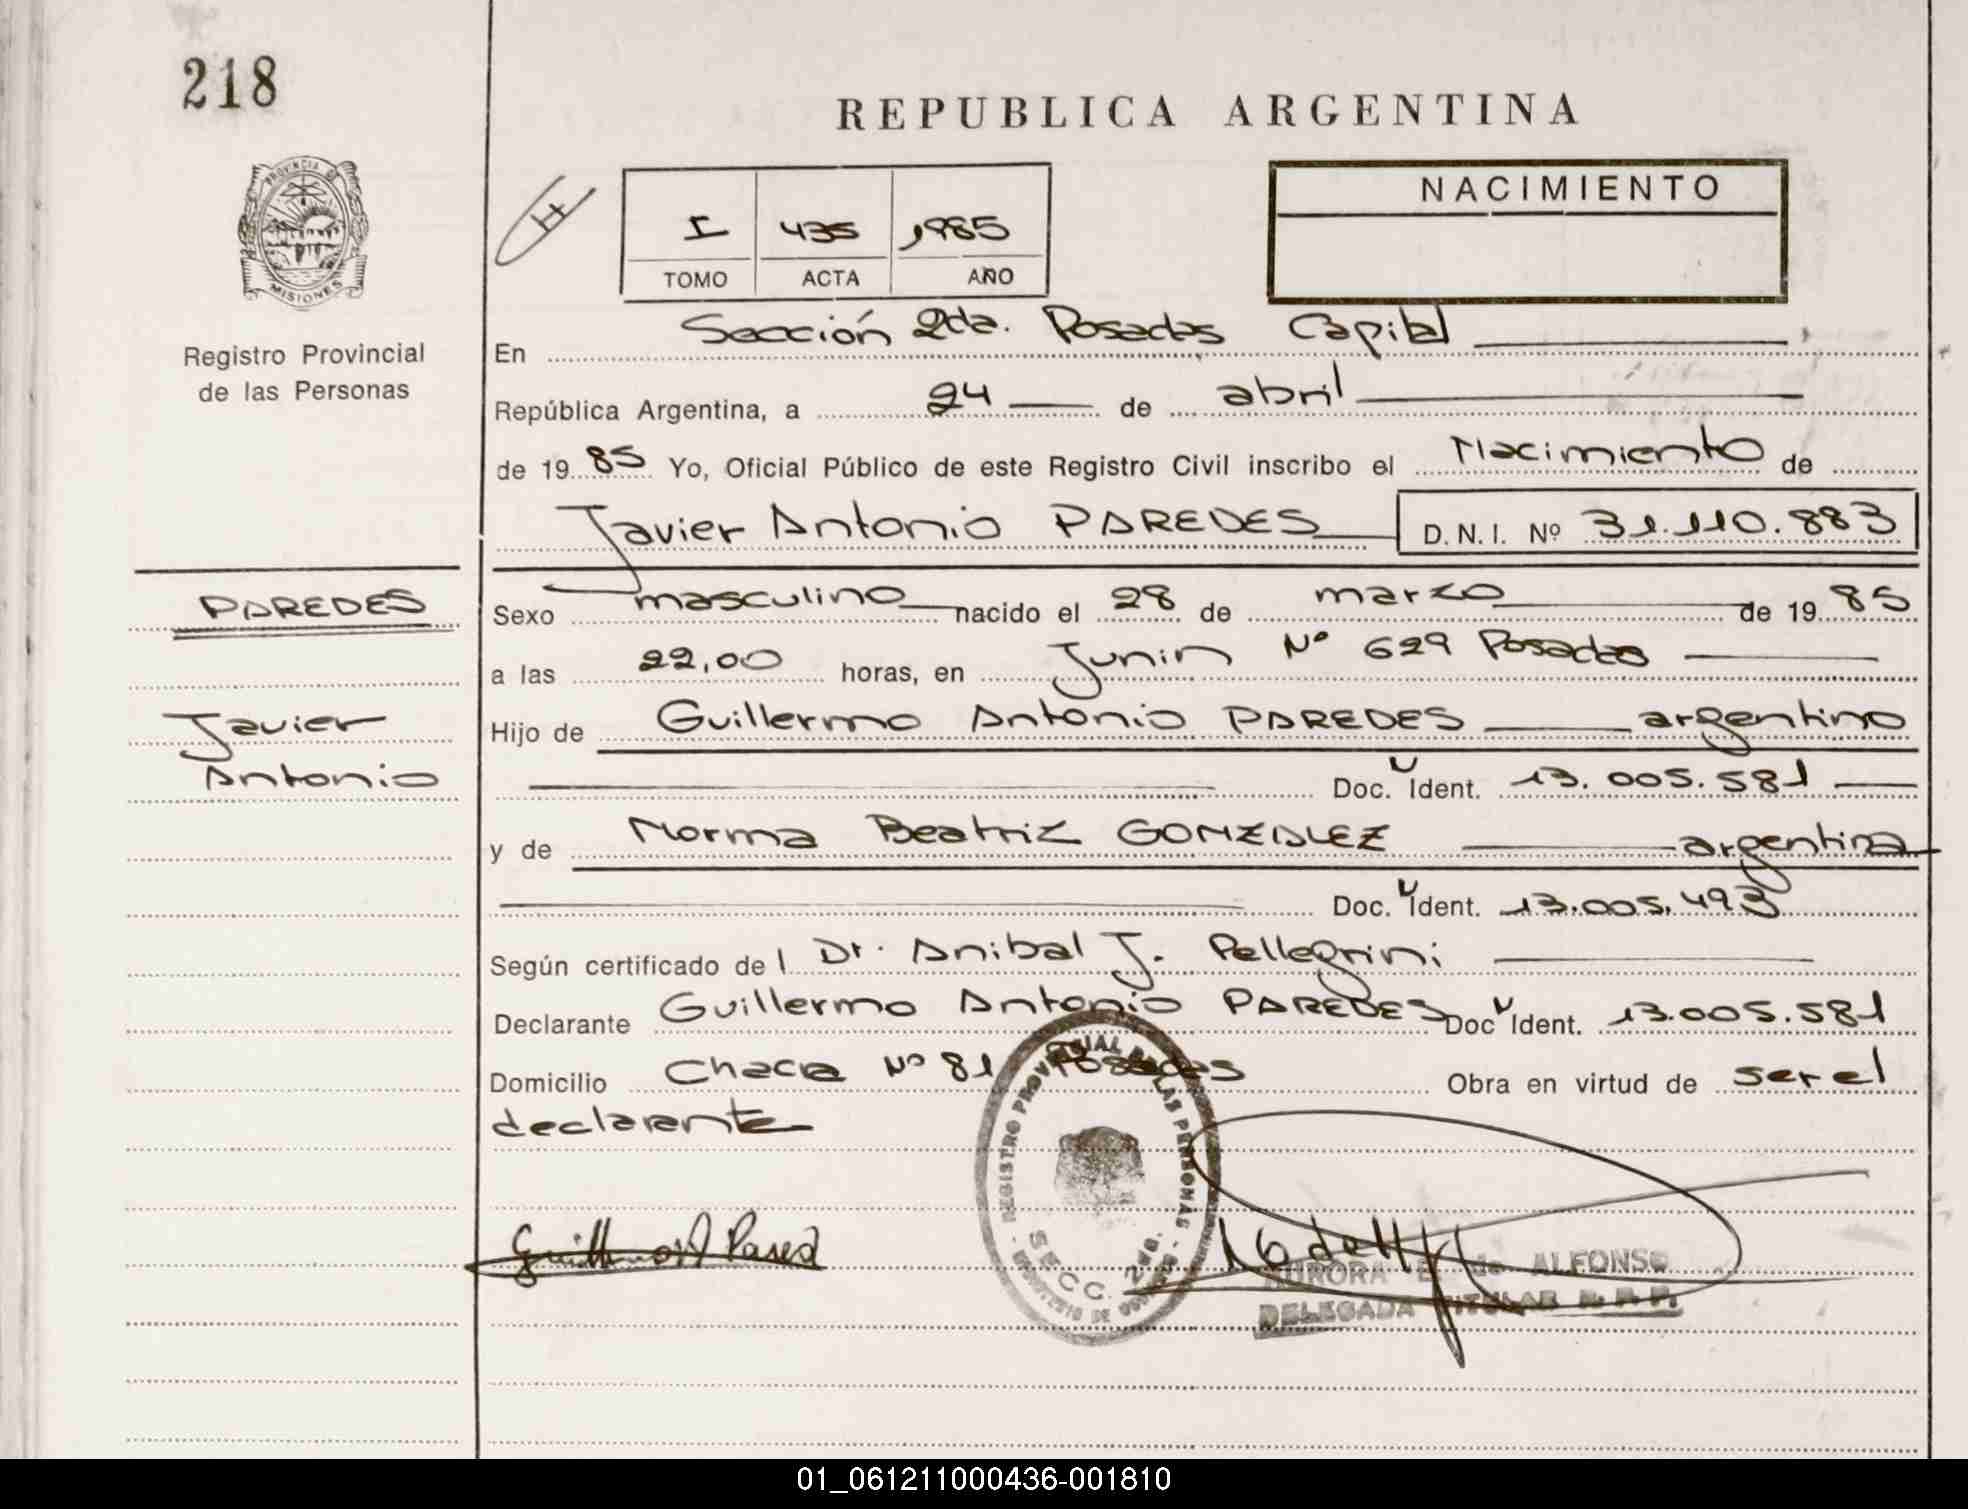 218
REPUBLICA ARGENTINA
PROVINCIA DE
MISIONES
Registro Provincial
de las Personas
H
I 435 1985
TOMO ACTA AÑO
NACIMIENTO
En Sección 2da. Posadas Capital
República Argentina, a 24 de abril
de 1985 Yo, Oficial Público de este Registro Civil inscribo el Nacimiento de
Javier Antonio PAREDES D. N. I. Nº 31.110.883
PAREDES
Javier
Antonio
Sexo masculino nacido el 28 de marzo de 1985
a las 22,00 horas, en Junin Nº 629 Posadas
Hijo de Guillermo Antonio PAREDES argentino
Doc. Ident. 13.005.581
y de Norma Beatriz GONZALEZ argentina
Doc. Ident. 13.005.493
Según certificado del Dr. Anibal J. Pellegrini
Declarante Guillermo Antonio PAREDES Doc Ident. 13.005.581
Domicilio Chacra Nº 81 Posadas Obra en virtud de ser el
declarante
REGISTRO PROVINCIAL DE LAS PERSONAS
SECC. 2DA.
Guillermo A Pared
AURORA E. de ALFONSO
DELEGADA TITULAR R. P. P.
01_061211000436-001810